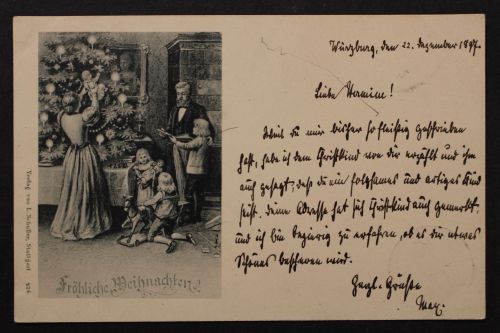 Würzburg, den 22. Dezember 1897.
Liebe Hermine!
Weil du mir bisher so fleißig geschrieben
hast, habe ich dem Christkind von dir erzählt und ihm
auch gesagt, daß du ein folgsames und artiges Kind
seist. Deine Adresse hat sich Christkind auch gemerkt,
und ich bin begierig zu erfahren, ob es dir etwas
Schönes bescheren wird.
Herzl. Grüße
Max.
Fröhliche Weihnachten!
Verlag von L. Schaller, Stuttgart 224